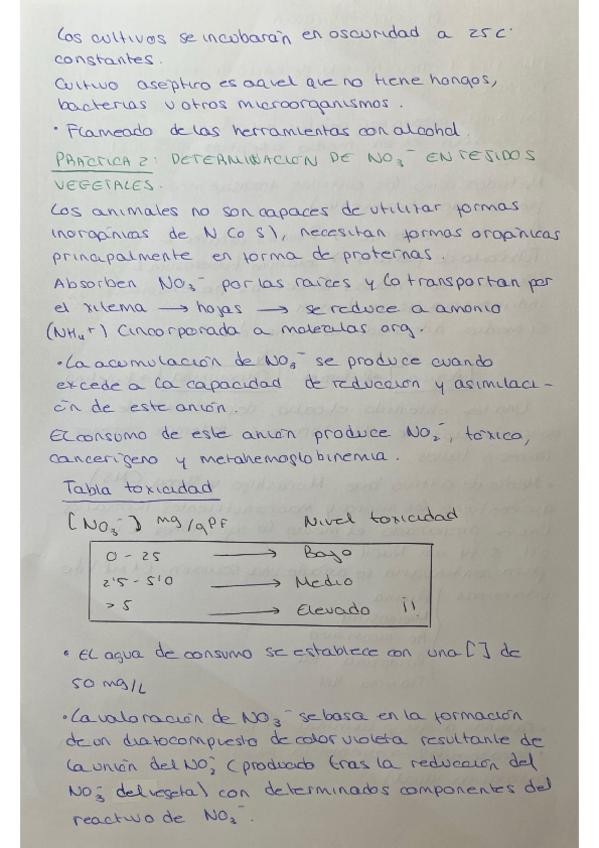 Los cultivos se incubarán en oscuridad a 25 C.
constantes.
Cultivo aséptico es aquel que no tiene hongos,
bacterias u otros microorganismos.
• Flameado de las herramientas con alcohol.
PRÁCTICA 2: DETERMINACIÓN DE NO3⁻ EN TEJIDOS
VEGETALES.
Los animales no son capaces de utilizar formas
inorgánicas de N (o S), necesitan formas orgánicas
principalmente en forma de proteínas.
Absorben NO3⁻ por las raíces y lo transportan por
el xilema → hojas → se reduce a amonio
(NH4+) (incorporada a moléculas org.
• La acumulación de NO3⁻ se produce cuando
excede a la capacidad de reducción y asimilaci-
ón de este anión.
El consumo de este anión produce NO2⁻, tóxico,
cancerígeno y metahemoglobinemia.
Tabla toxicidad
[NO3⁻] mg/gPF Nivel toxicidad
0 - 25 → Bajo
2'5 - 5'0 → Medio
> 5 → Elevado ¡!
• El agua de consumo se establece con una [ ] de
50 mg/L
• La valoración de NO3⁻ se basa en la formación
de un diatocompuesto de color violeta resultante de
la unión del NO2⁻ (producido tras la reducción del
NO3⁻ del vegetal) con determinados componentes del
reactivo de NO3⁻.